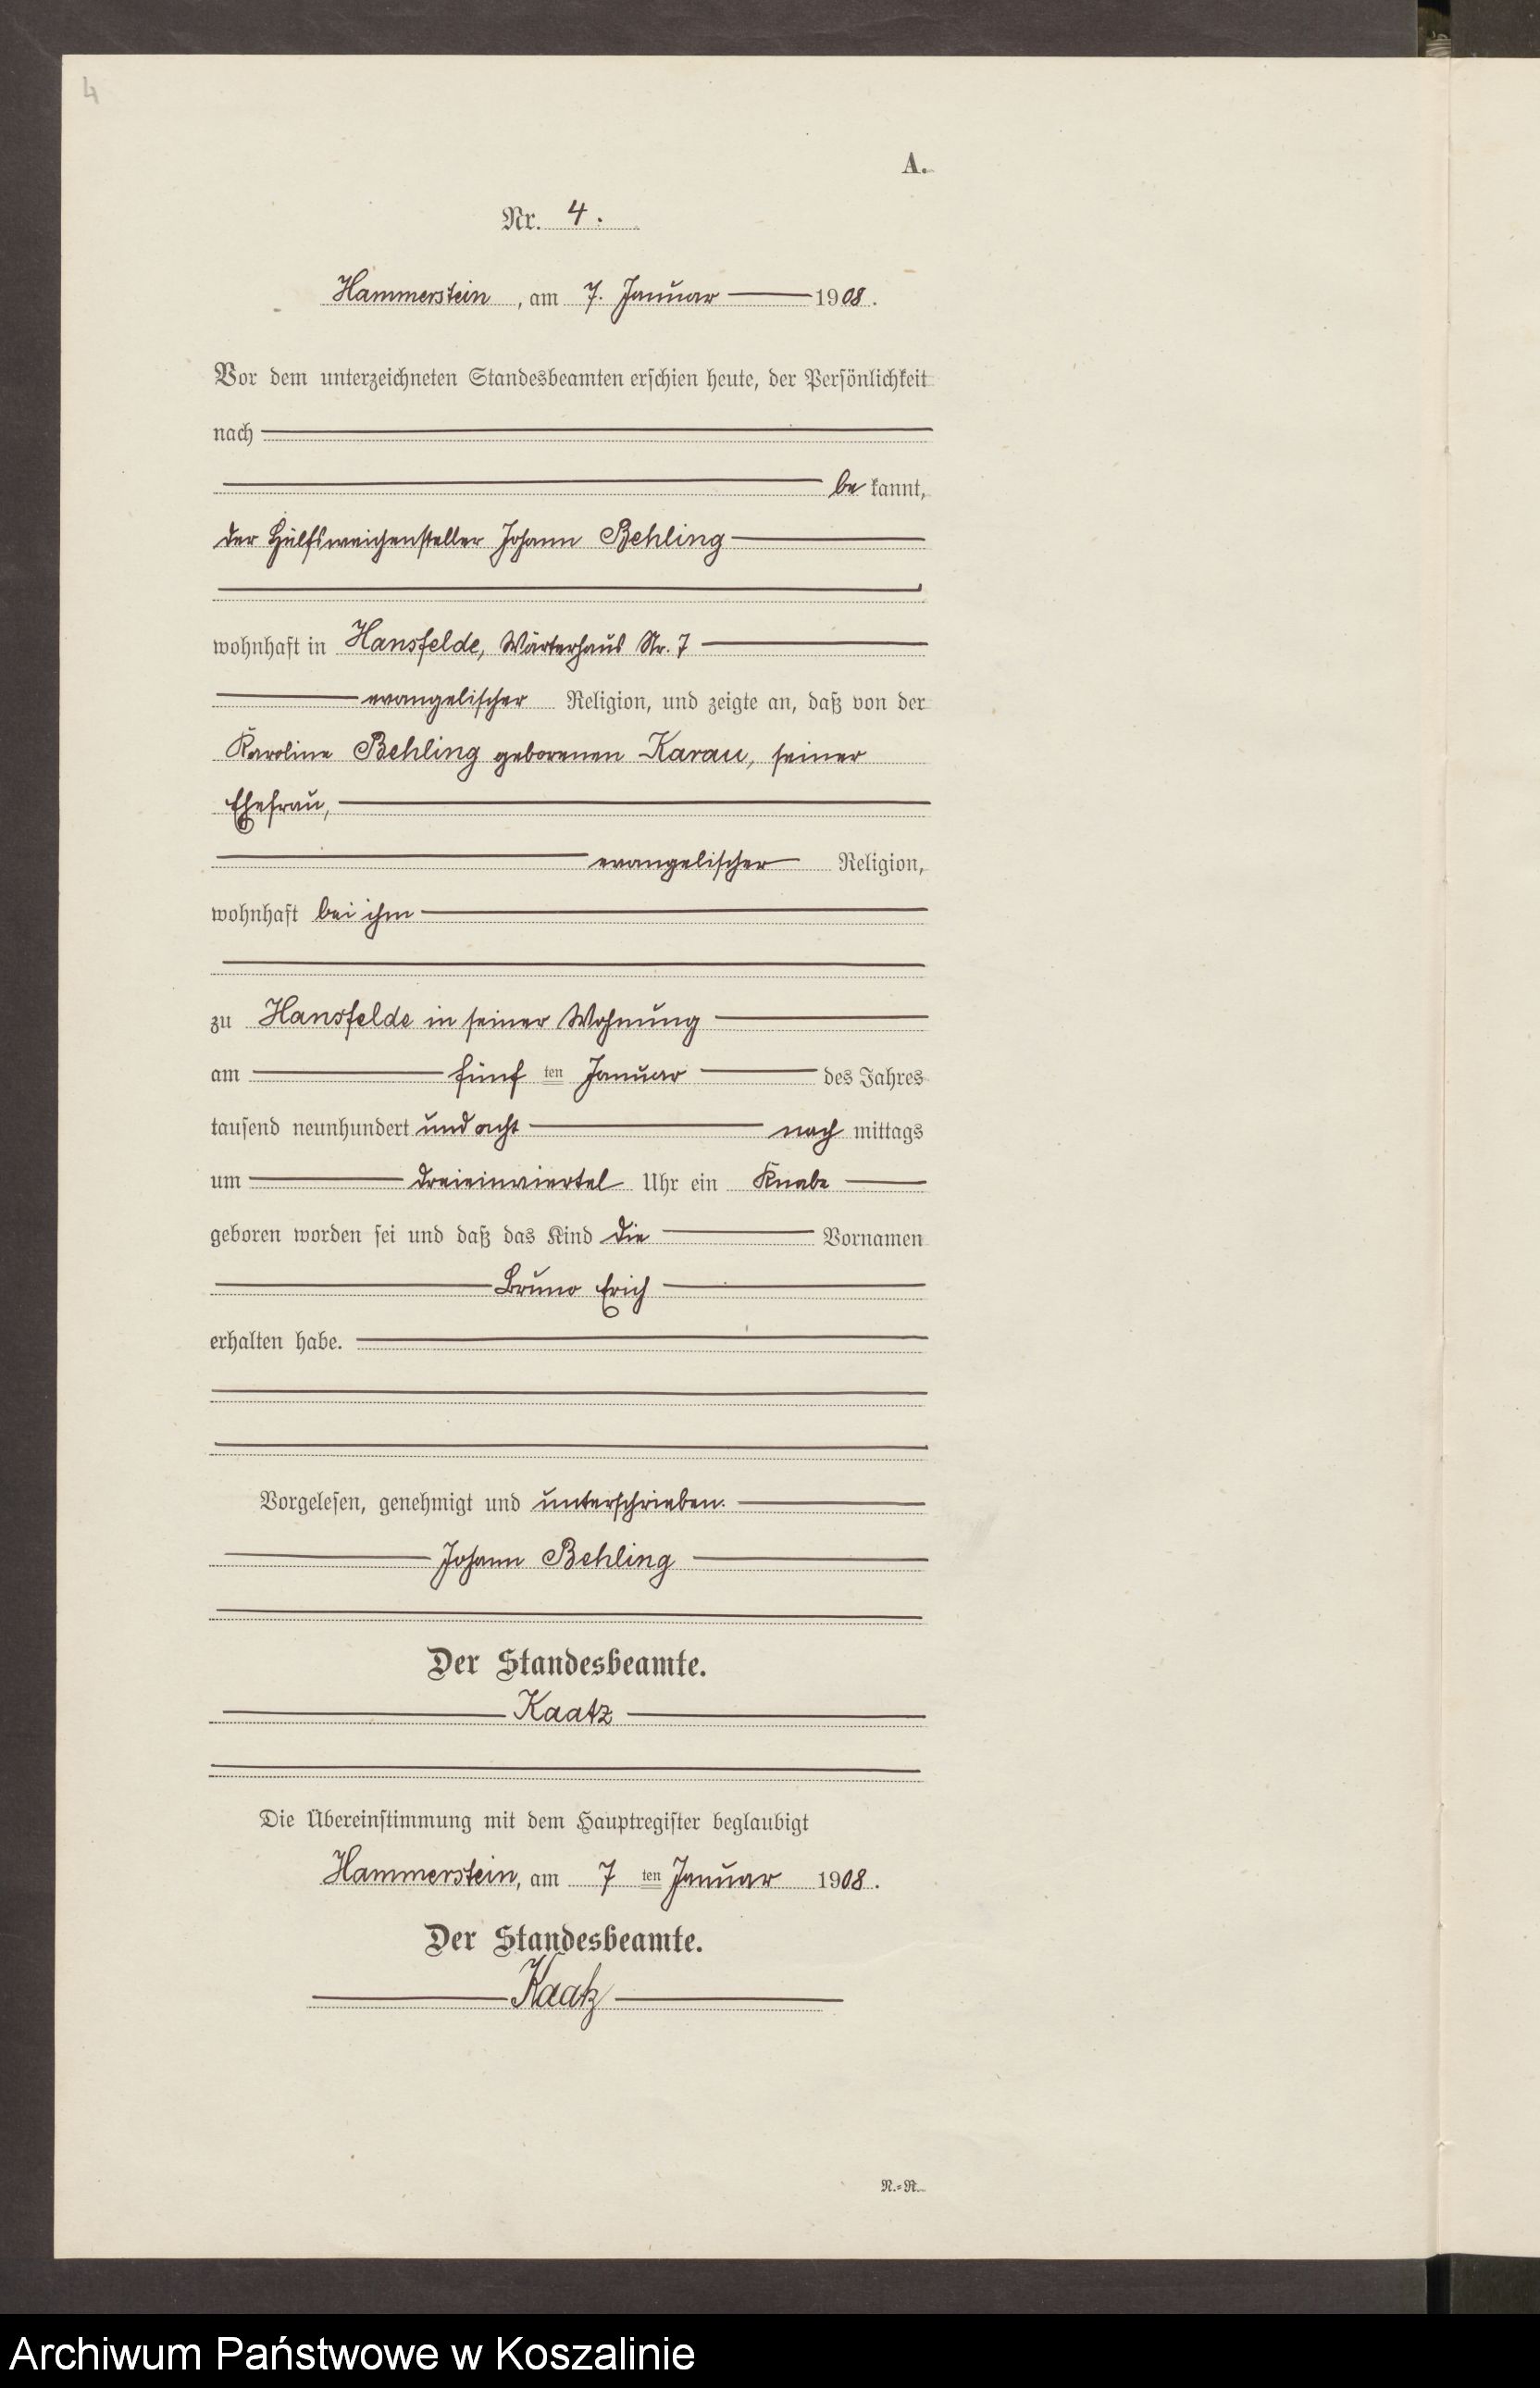 4
A.
Nr. 4.
Hammerstein, am 7. Januar 1908.
Vor dem unterzeichneten Standesbeamten erschien heute, der Persönlichkeit
nach
be kannt,
der Hülfsweichensteller Johann Behling
wohnhaft in Hansfelde, Wärterhaus Nr. 7
evangelischer Religion, und zeigte an, daß von der
Karoline Behling geborenen Karau, seiner
Ehefrau,
evangelischer Religion,
wohnhaft bei ihm
zu Hansfelde in seiner Wohnung
am fünf ten Januar des Jahres
tausend neunhundert und acht nach mittags
um dreieinviertel Uhr ein Knabe
geboren worden sei und daß das Kind die Vornamen
Bruno Erich
erhalten habe.
Vorgelesen, genehmigt und unterschrieben.
Johann Behling
Der Standesbeamte.
Kaatz
Die Übereinstimmung mit dem Hauptregister beglaubigt
Hammerstein, am 7 ten Januar 1908.
Der Standesbeamte.
Kaatz
N.=R.
Archiwum Państwowe w Koszalinie